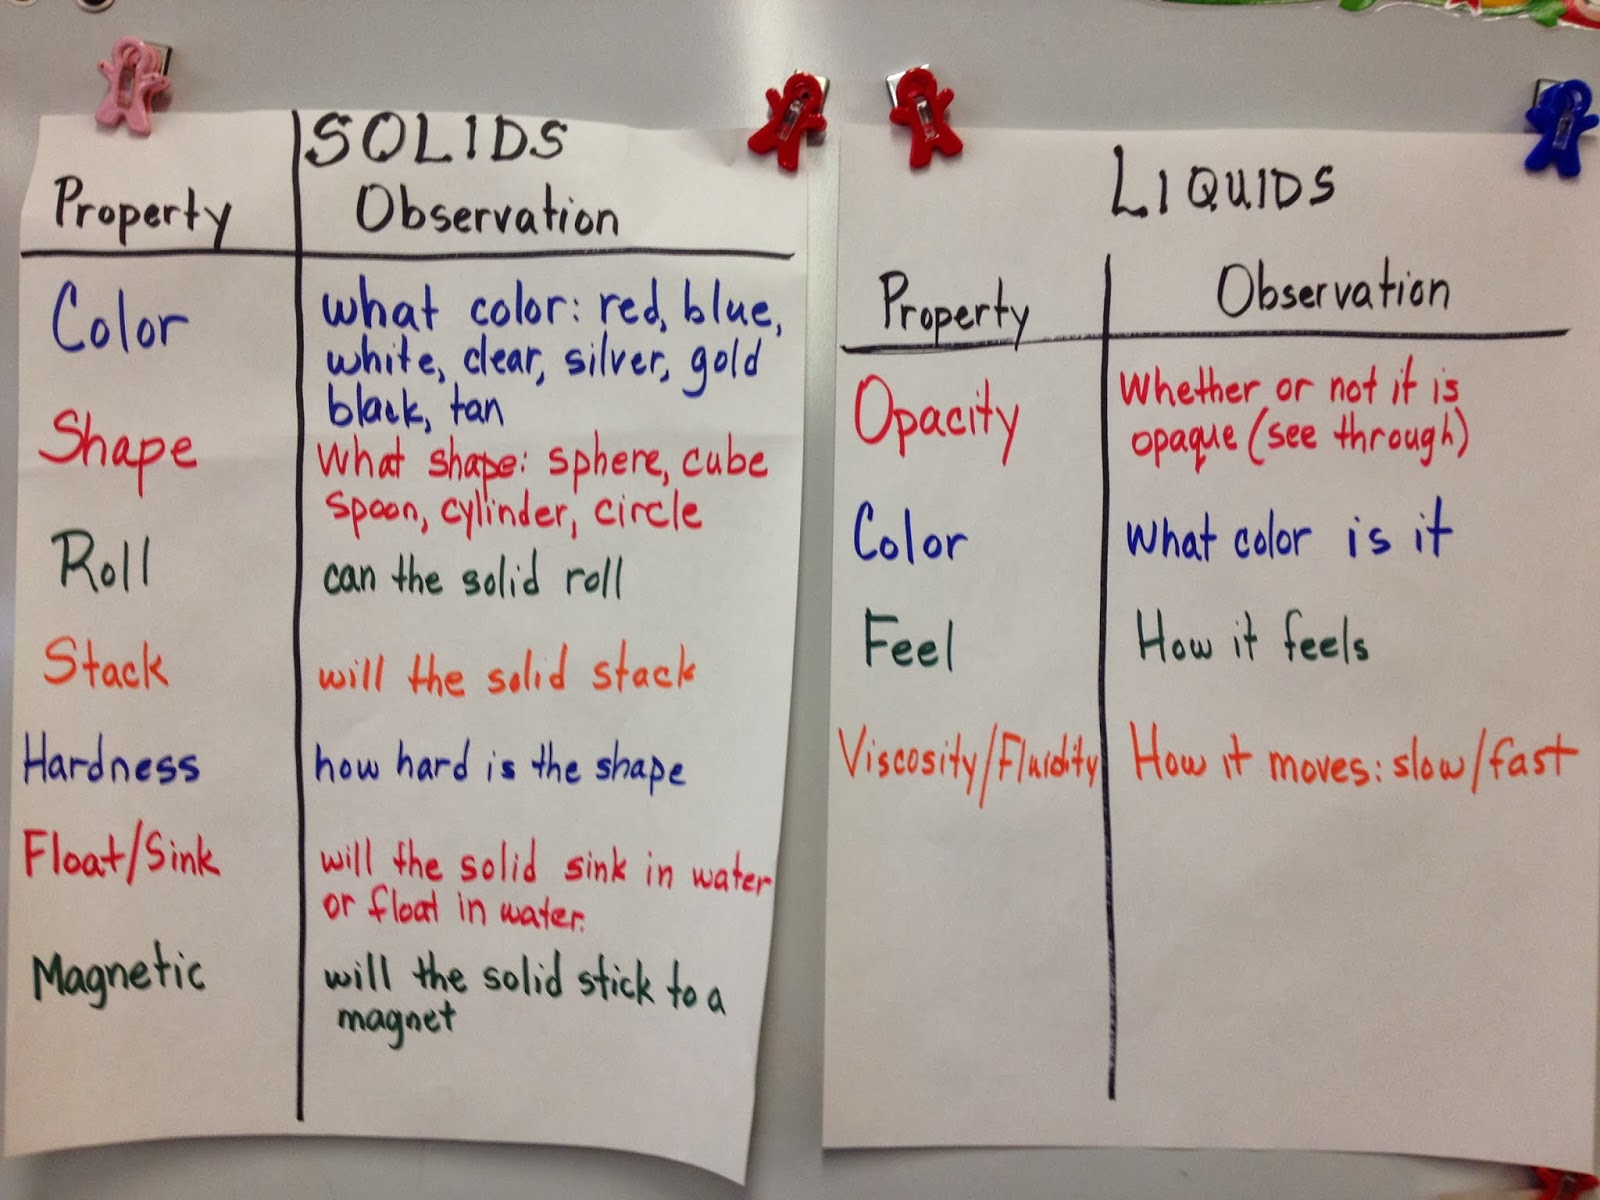 SOLIDS
Property Observation
Color what color: red, blue,
white, clear, silver, gold
black, tan
Shape What shape: sphere, cube
spoon, cylinder, circle
Roll can the solid roll
Stack will the solid stack
Hardness how hard is the shape
Float/Sink will the solid sink in water
or float in water.
Magnetic will the solid stick to a
magnet
LIQUIDS
Property Observation
Opacity Whether or not it is
opaque (see through)
Color what color is it
Feel How it feels
Viscosity/Fluidity How it moves: slow/fast